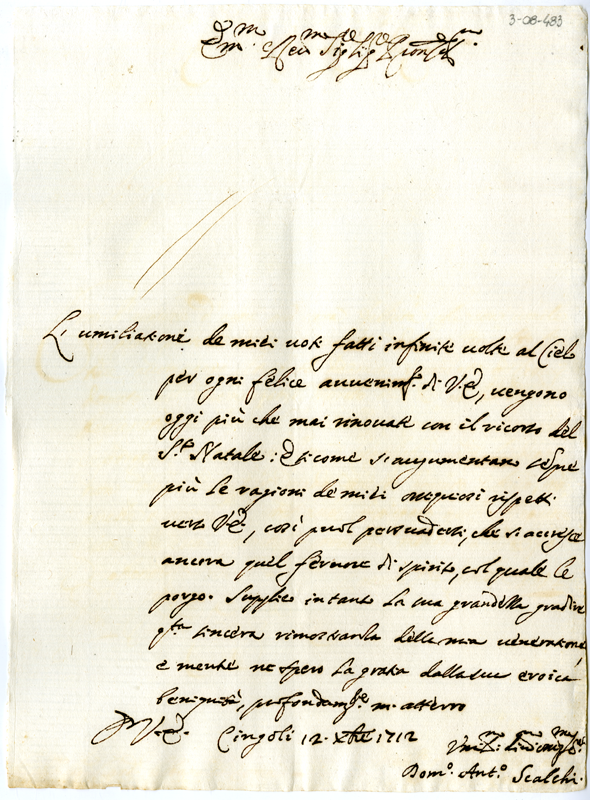 3-08-483
Em.mo e Rev.mo Sig.r Sig.r Pron Col.mo
L'umiliatione de miei voti fatti infinite volte al Cielo
per ogni felice avvenim.to di V.E., vengono
oggi più che mai rinovati con il ricorso del
S.to Natale: E sicome si augumentano sempre
più le ragioni de miei ossequiosi rispetti
verso V.E., così puol persuadersi, che si accresce
ancora quel fervore di spirito, col quale le
porgo. Supplico intanto la sua grandezza gradire
q.sta sincera rimostranza della mia veneratione
e mentre ne spero la grata dalla sua eroica
benignità, profondam.te m'atterro
D V.E. Cingoli 12 Xbre 1712
Dom.o Ant.o Scalchi